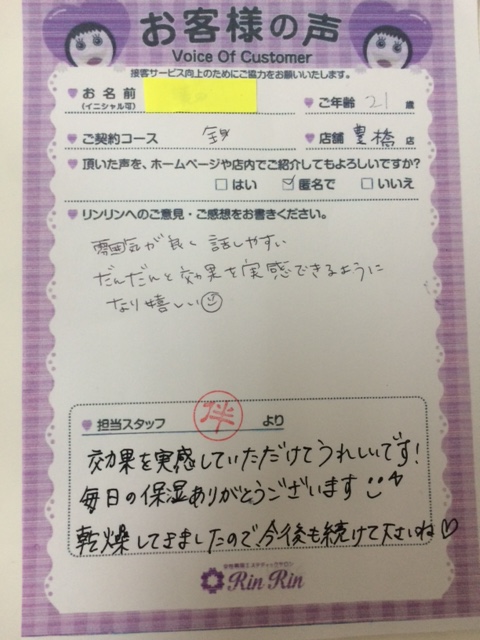 お客様の声
Voice Of Customer
接客サービス向上のためにご協力をお願いいたします。
お名前
(イニシャル可)
ご年齢 21 歳
ご契約コース 全身
店舗 豊橋 店
頂いた声を、ホームページや店内でご紹介してもよろしいですか?
□はい ☑匿名で □いいえ
リンリンへのご意見・ご感想をお書きください。
雰囲気が良く話しやすい
だんだんと効果を実感できるように
なり嬉しい☺
担当スタッフ 伴 より
効果を実感していただけてうれしいです!
毎日の保湿ありがとうございます
乾燥してきましたので今後も続けて下さいね♡
女性専用エステティックサロン
Rin Rin